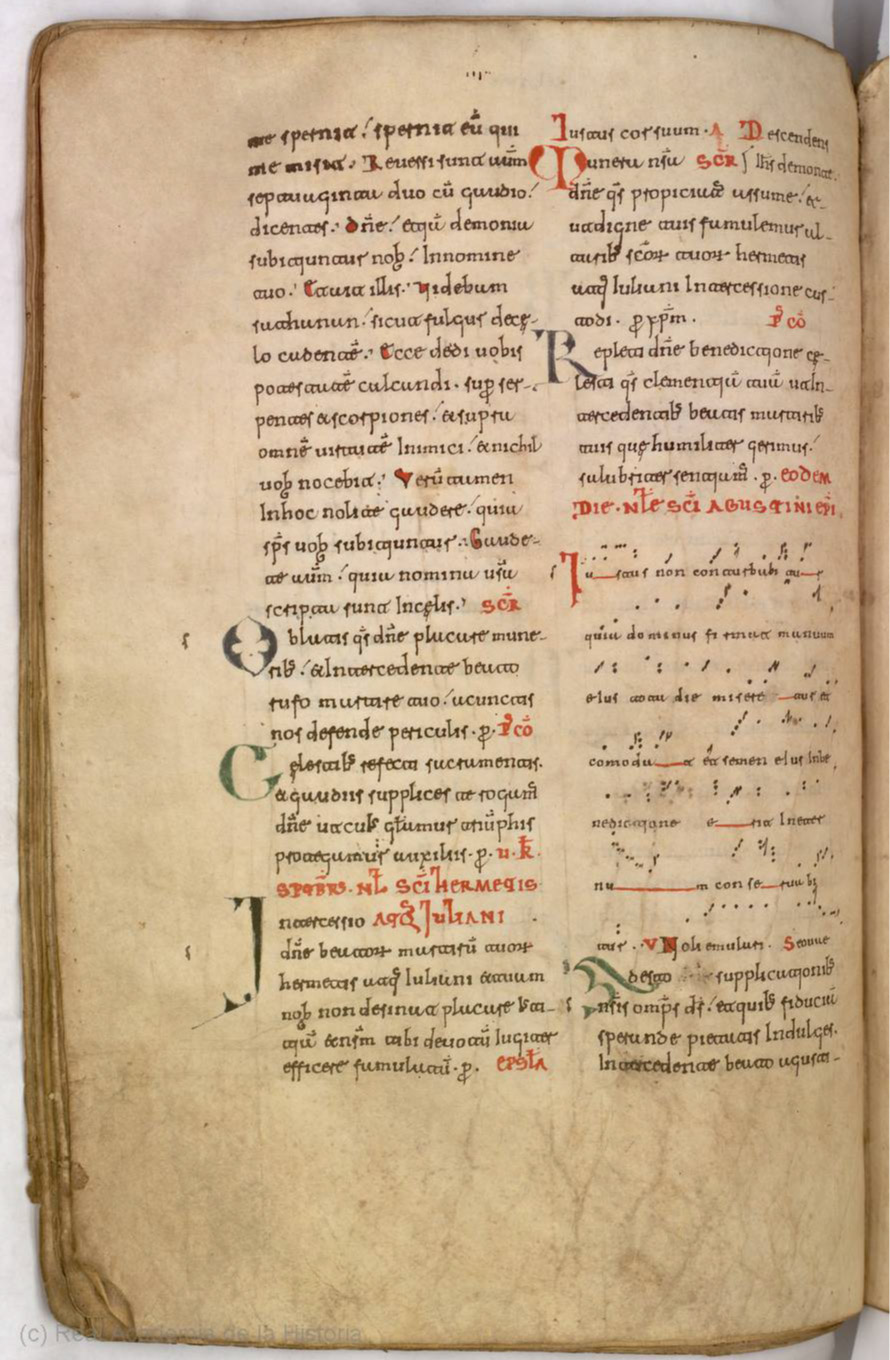 me spernit. spernit eū qui
me misit. Reversi sunt aūm
septuaginta duo cū gaudio.
dicentes. dn̄e. etiā demonia
subiciuntur nob. In nomine
tuo. Et ait illis. videbam
sathanan. sicut fulgur de cę-
lo cadentē. Ecce dedi vobis
potestatē calcandi. sup̱ ser-
pentes & scorpiones. & supra
omnē virtutē Inimici. & nichil
vob nocebit. Verū tamen
In hoc nolite gaudere. quia
sp̄s vob subiciuntur. Gaude-
te aūm. quia nomina vr̄a
scripta sunt In cęlis. SCR̄
Oblatis qs̄ dn̄e placare mune-
rib. & Intercedente beato
rufo martire tuo. a cunctis
nos defende periculis. p̱. P̄ CŌ
Cęlestib refecti sacramentis.
& gaudiis supplices te rogam̄
dn̄e ut quor̄ gl̄amur triūphis
protegamur auxiliis. p̱. V. K̄L
SPTBRS. NL̄ SCĪ HERMETIS
Intercessio ATQ̄ JULIANI
dn̄e beator martirū tuor
hermetis atq̄ Iuliani & tuum
nob non desinat placare. &
efficere famulatū. p̱. EPSTL̄A
Iustus cor suum. A Descendens
Muneru nr̄u SCR̄ Ih̄s de monte.
dn̄e qs̄ propiciatus assume. &
ut digne tuis famulemur al-
tarib scōr tuor hermetis
atq̄ Iuliani Intercessione cus-
todi. p̱ xp̄m. P̄ CŌ
Repleti dn̄e benedictione cę-
lesti qs̄ clementiā tuā ut In-
tercedentib beatis martirib
tuis quę humiliter gerimus.
salubriter sentiam̄. p̱. EODEM
DIE. NL̄E SCĪ AGUSTINI EPĪ
Iustus non conturbabitur
quia dominus firmat manum
eIus tota die miseretur et
comodat et semen eIus In be
nedictione erit In eter
num conserva bi
tur. V Noli emulari. Seuue
Adesto supplicationib
nr̄is omp̄s ds̄. et quib fiduciā
sperande pietatis Indulges.
Intercedente beato agusti-